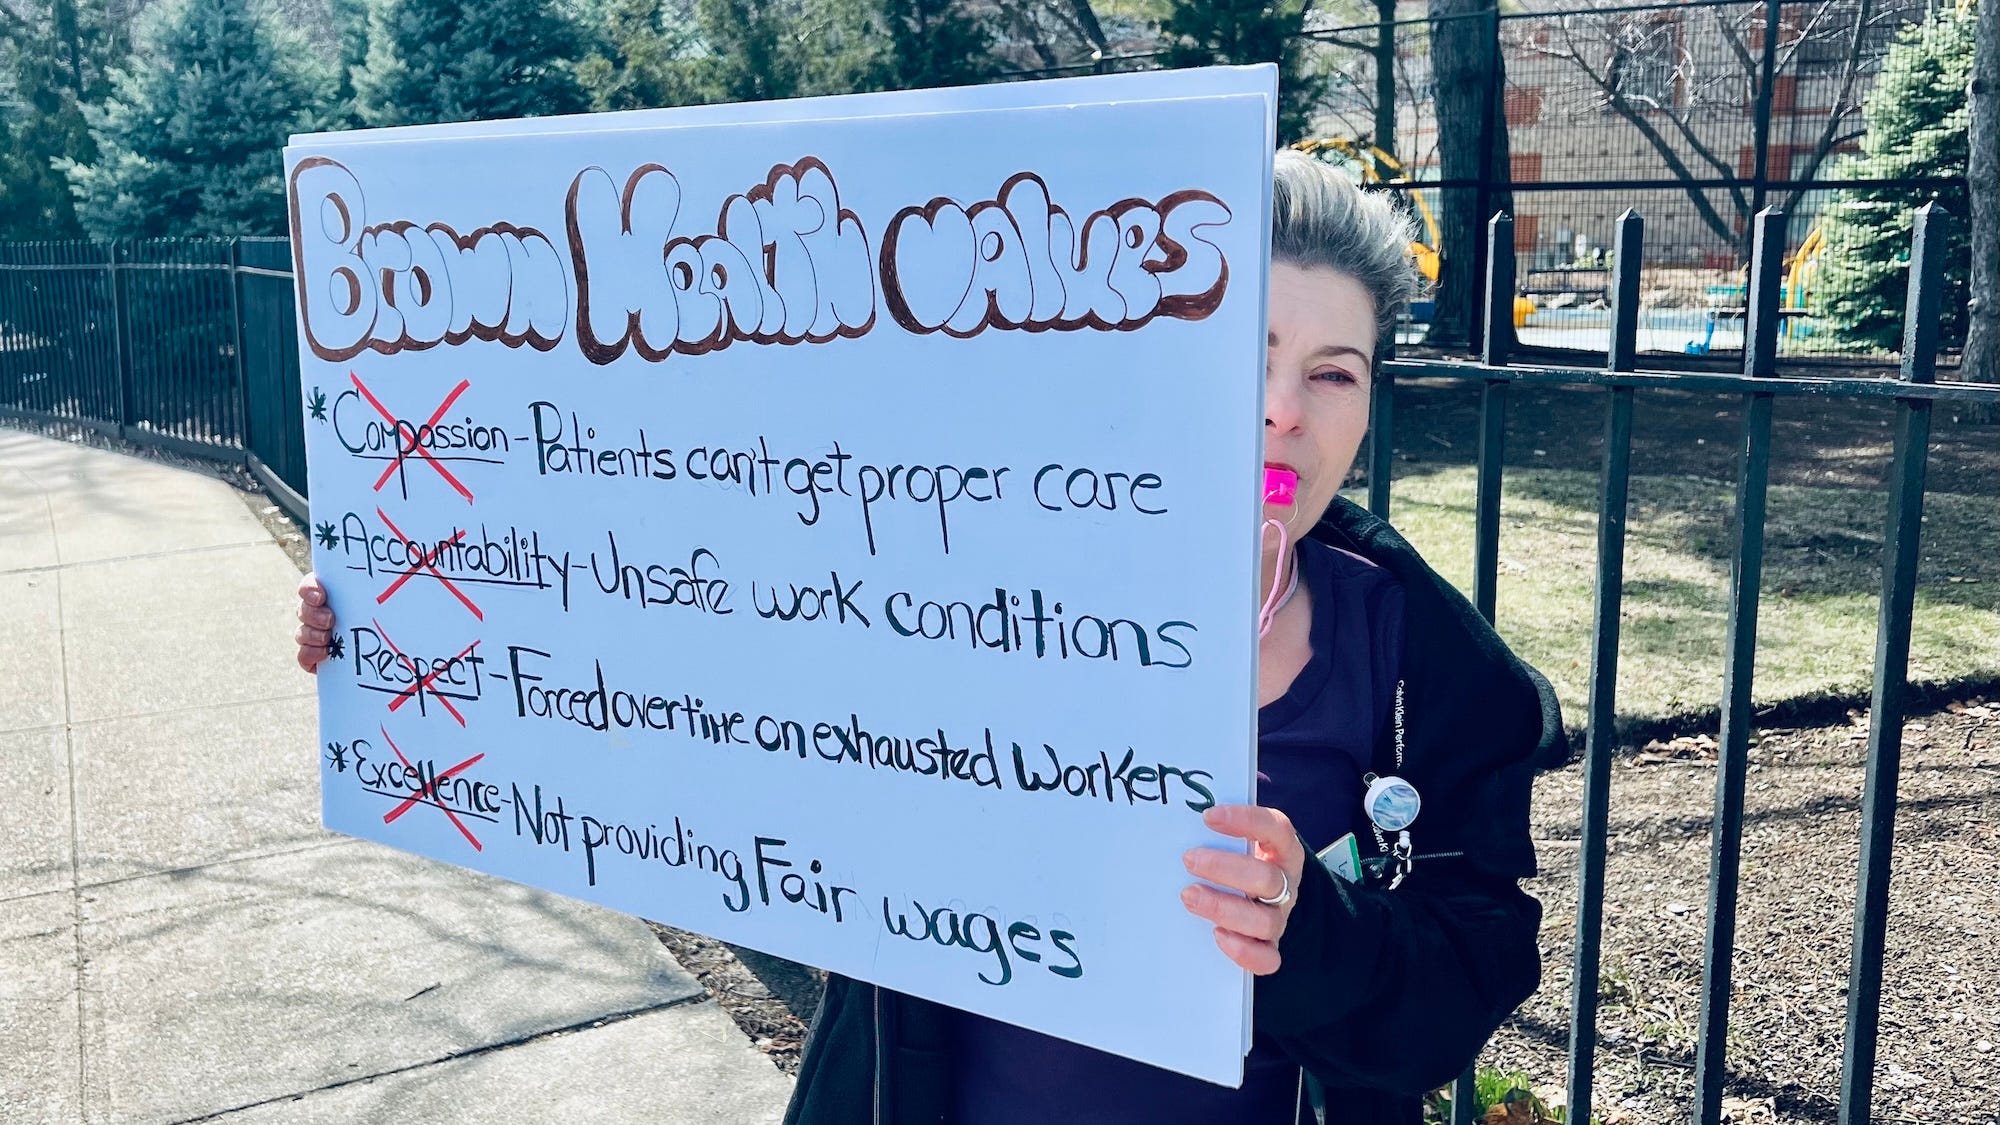 Brown Health values
* Compassion - Patients can't get proper care
* Accountability - Unsafe work conditions
* Respect - Forced overtime on exhausted Workers
* Excellence - Not providing Fair wages
Calvin Klein Perform